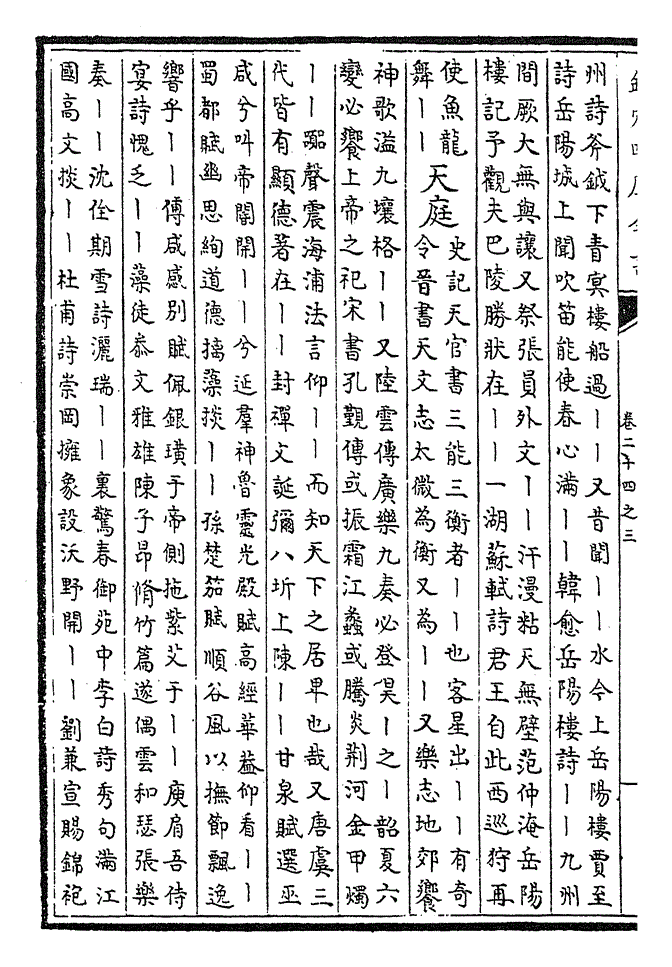 欽定四庫全書
卷二十四之三
州詩斧鉞下青冥樓船過丨丨又昔聞丨丨水今上岳陽樓賈至
詩岳陽城上聞吹笛能使春心滿丨丨韓愈岳陽樓詩丨丨九州
間厥大無與讓又祭張員外文丨丨汗漫粘天無壁范仲淹岳陽
樓記予觀夫巴陵勝狀在丨丨一湖蘇軾詩君王自此西巡狩再
使魚龍
舞丨丨
天庭
史記天官書三能三衡者丨丨也客星出丨丨有奇
令晉書天文志太微為衡又為丨丨又樂志地郊饗
神歌溢九壤格丨丨又陸雲傳廣樂九奏必登昊丨之丨韶夏六
變必饗上帝之祀宋書孔覬傳或振霜江蠡或騰炎荆河金甲燭
丨丨鼙聲震海浦法言仰丨丨而知天下之居卑也哉又唐虞三
代皆有顯德著在丨丨封禪文誕彌八圻上陳丨丨甘泉賦選巫
咸兮叫帝閽開丨丨兮延羣神魯靈光殿賦高經華蓋仰看丨丨
蜀都賦幽思絢道德摛藻掞丨丨孫楚笳賦順谷風以撫節飄逸
響乎丨丨傅咸感别賦佩銀璜于帝側拖紫艾于丨丨庾肩吾侍
宴詩愧乏丨丨藻徒忝文雅雄陳子昂脩竹篇遂偶雲和瑟張樂
奏丨丨沈佺期雪詩灑瑞丨丨裏驚春御苑中李白詩秀句滿江
國高文掞丨丨杜甫詩崇岡擁象設沃野開丨丨劉兼宣賜錦袍